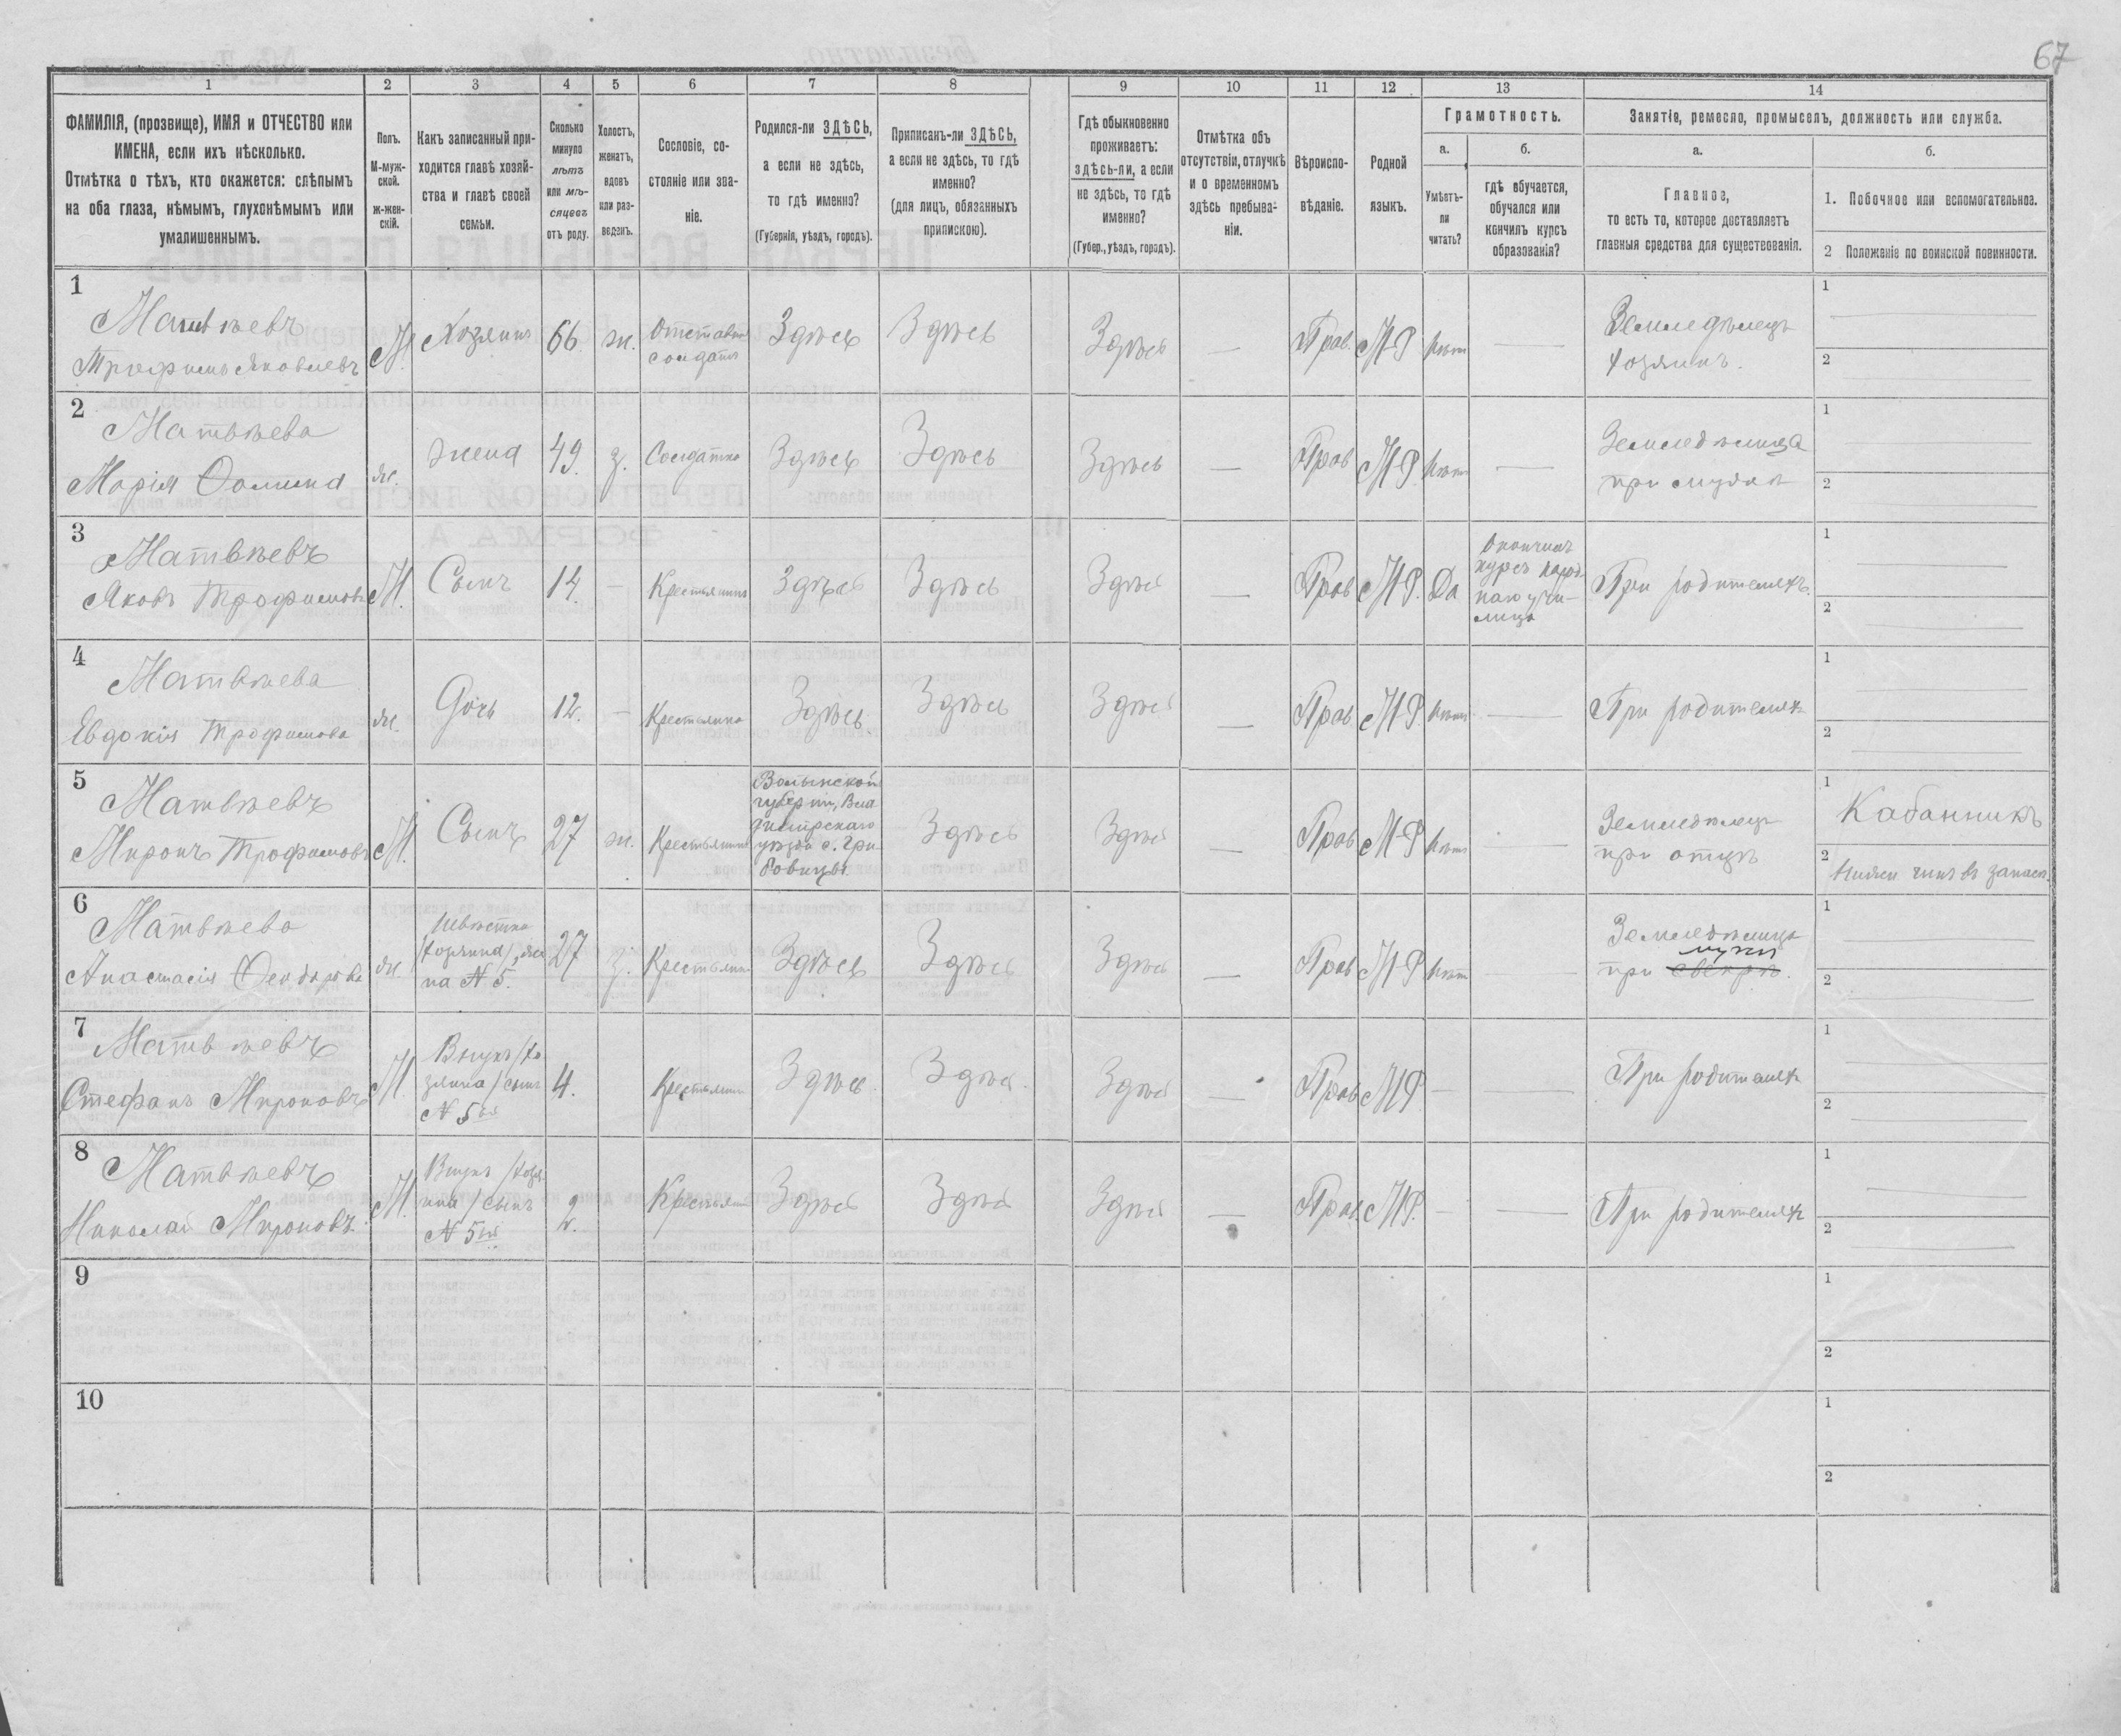 67
1 2 3 4 5 6 7 8 9 10 11 12 13 14
ФАМИЛІЯ, (прозвище), ИМЯ и ОТЧЕСТВО или
ИМЕНА, если ихъ нѣсколько.
Отмѣтка о тѣхъ, кто окажется: слѣпымъ
на оба глаза, нѣмымъ, глухонѣмымъ или
умалишеннымъ.
Полъ.
М-муж-
ской.
ж-жен-
скій.
Какъ записанный при-
ходится главѣ хозяй-
ства и главѣ своей
семьи.
Сколько
минуло
лѣтъ
или мѣ-
сяцевъ
отъ роду.
Холостъ,
женатъ,
вдовъ
или раз-
веденъ.
Сословіе, со-
стояніе или зва-
ніе.
Родился-ли ЗДѢСЬ,
а если не здѣсь,
то гдѣ именно?
(Губернія, уѣздъ, городъ).
Приписанъ-ли ЗДѢСЬ,
а если не здѣсь, то гдѣ
именно?
(для лицъ, обязанныхъ
припискою).
Гдѣ обыкновенно
проживаетъ:
здѣсь-ли, а если
не здѣсь, то гдѣ
именно?
(Губер., уѣздъ, городъ).
Отмѣтка объ
отсутствіи, отлучкѣ
и о временномъ
здѣсь пребыва-
ніи.
Вѣроиспо-
вѣданіе.
Родной
языкъ.
Грамотность.
а.
Умѣетъ-
ли
читать?
б.
гдѣ обучается,
обучался или
кончилъ курсъ
образованія?
Занятіе, ремесло, промыселъ, должность или служба.
а.
Главное,
то есть то, которое доставляетъ
главныя средства для существованія.
б.
1. Побочное или вспомогательное.
2 Положеніе по воинской повинности.
1
Матвѣевъ
Трофимъ Яковлевъ
М. Хозяинъ 66 ж. Отставн
солдатъ
Здѣсь Здѣсь Здѣсь — Прав. М-Р Нѣт —
Земледѣлецъ
хозяинъ.
1
2
2
Матвѣева
Марія Фомина
ж. жена 49. з. Солдатка Здѣсь Здѣсь Здѣсь — Прав М-Р. Нѣт —
Земледѣлица
при мужѣ
1
2
3
Матвѣевъ
Яковъ Трофимовъ
М. Сынъ 14. — Крестьянинъ Здѣсь Здѣсь Здѣсь — Прав М-Р. Да
Окончилъ
курсъ народ-
наго учи-
лища
При родителяхъ.
1
2
4
Матвѣева
Евдокія Трофимова
ж. Дочь 12. — Крестьянка Здѣсь Здѣсь Здѣсь — Прав М-Р. Нѣт —
При родителях
1
2
5
Матвѣевъ
Миронъ Трофимовъ
М. Сынъ 27 ж. Крестьянин
Волынской
губерніи, Вла
димірскаго
уѣзда с. Гри
бовицы.
Здѣсь Здѣсь — Прав М-Р Нѣт —
Земледѣлец
при отцѣ
1
Кабанникъ
2
Нижн чинъ въ запасѣ.
6
Матвѣева
Анастасія Феодорова
ж.
Невѣстка
/хозяина/, жена
на № 5.
27 з. Крестьянк Здѣсь Здѣсь Здѣсь — Прав М-Р Нѣт —
Земледѣлица
мужи
при свекрѣ.
1
2
7
Матвѣевъ
Стефанъ Мироновъ
М
Внукъ /хо
зяина/ сынъ
№ 5го
4. Крестьянин Здѣсь Здѣсь. Здѣсь — Прав М-Р — —
При родителях
1
2
8
Матвѣевъ
Николай Мироновъ.
М.
Внукъ /хозя
ина/ сынъ
№ 5го
2. Крестьян Здѣсь Здѣсь Здѣсь — Прав. М-Р. — —
При родителях
1
2
9
1
2
10
1
2